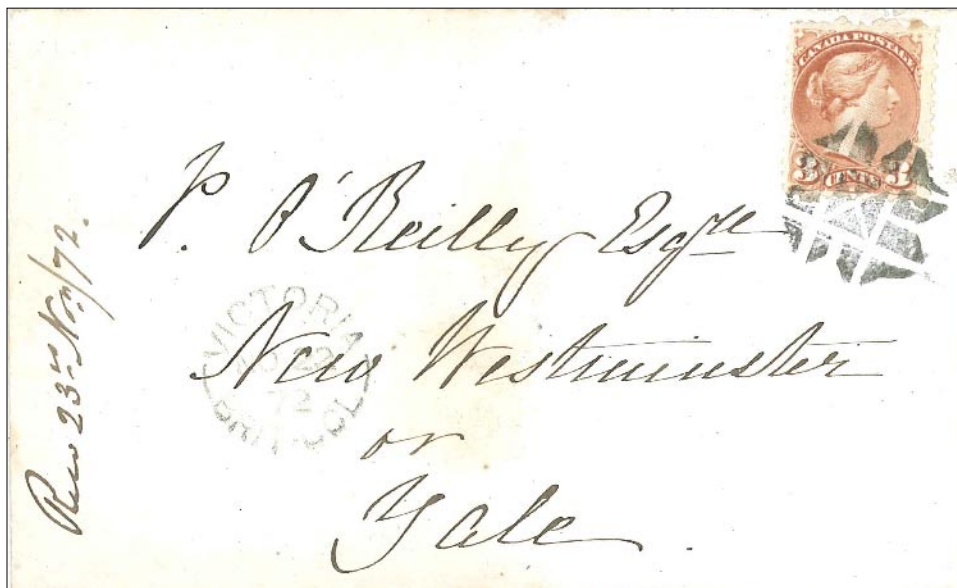 CANADA POSTAGE
3 CENTS 3
P. O'Reilly Esqre
New Westminster
or
Yale.
VICTORIA
NO 22
72
BRIT. COL
23rd Novr/72.